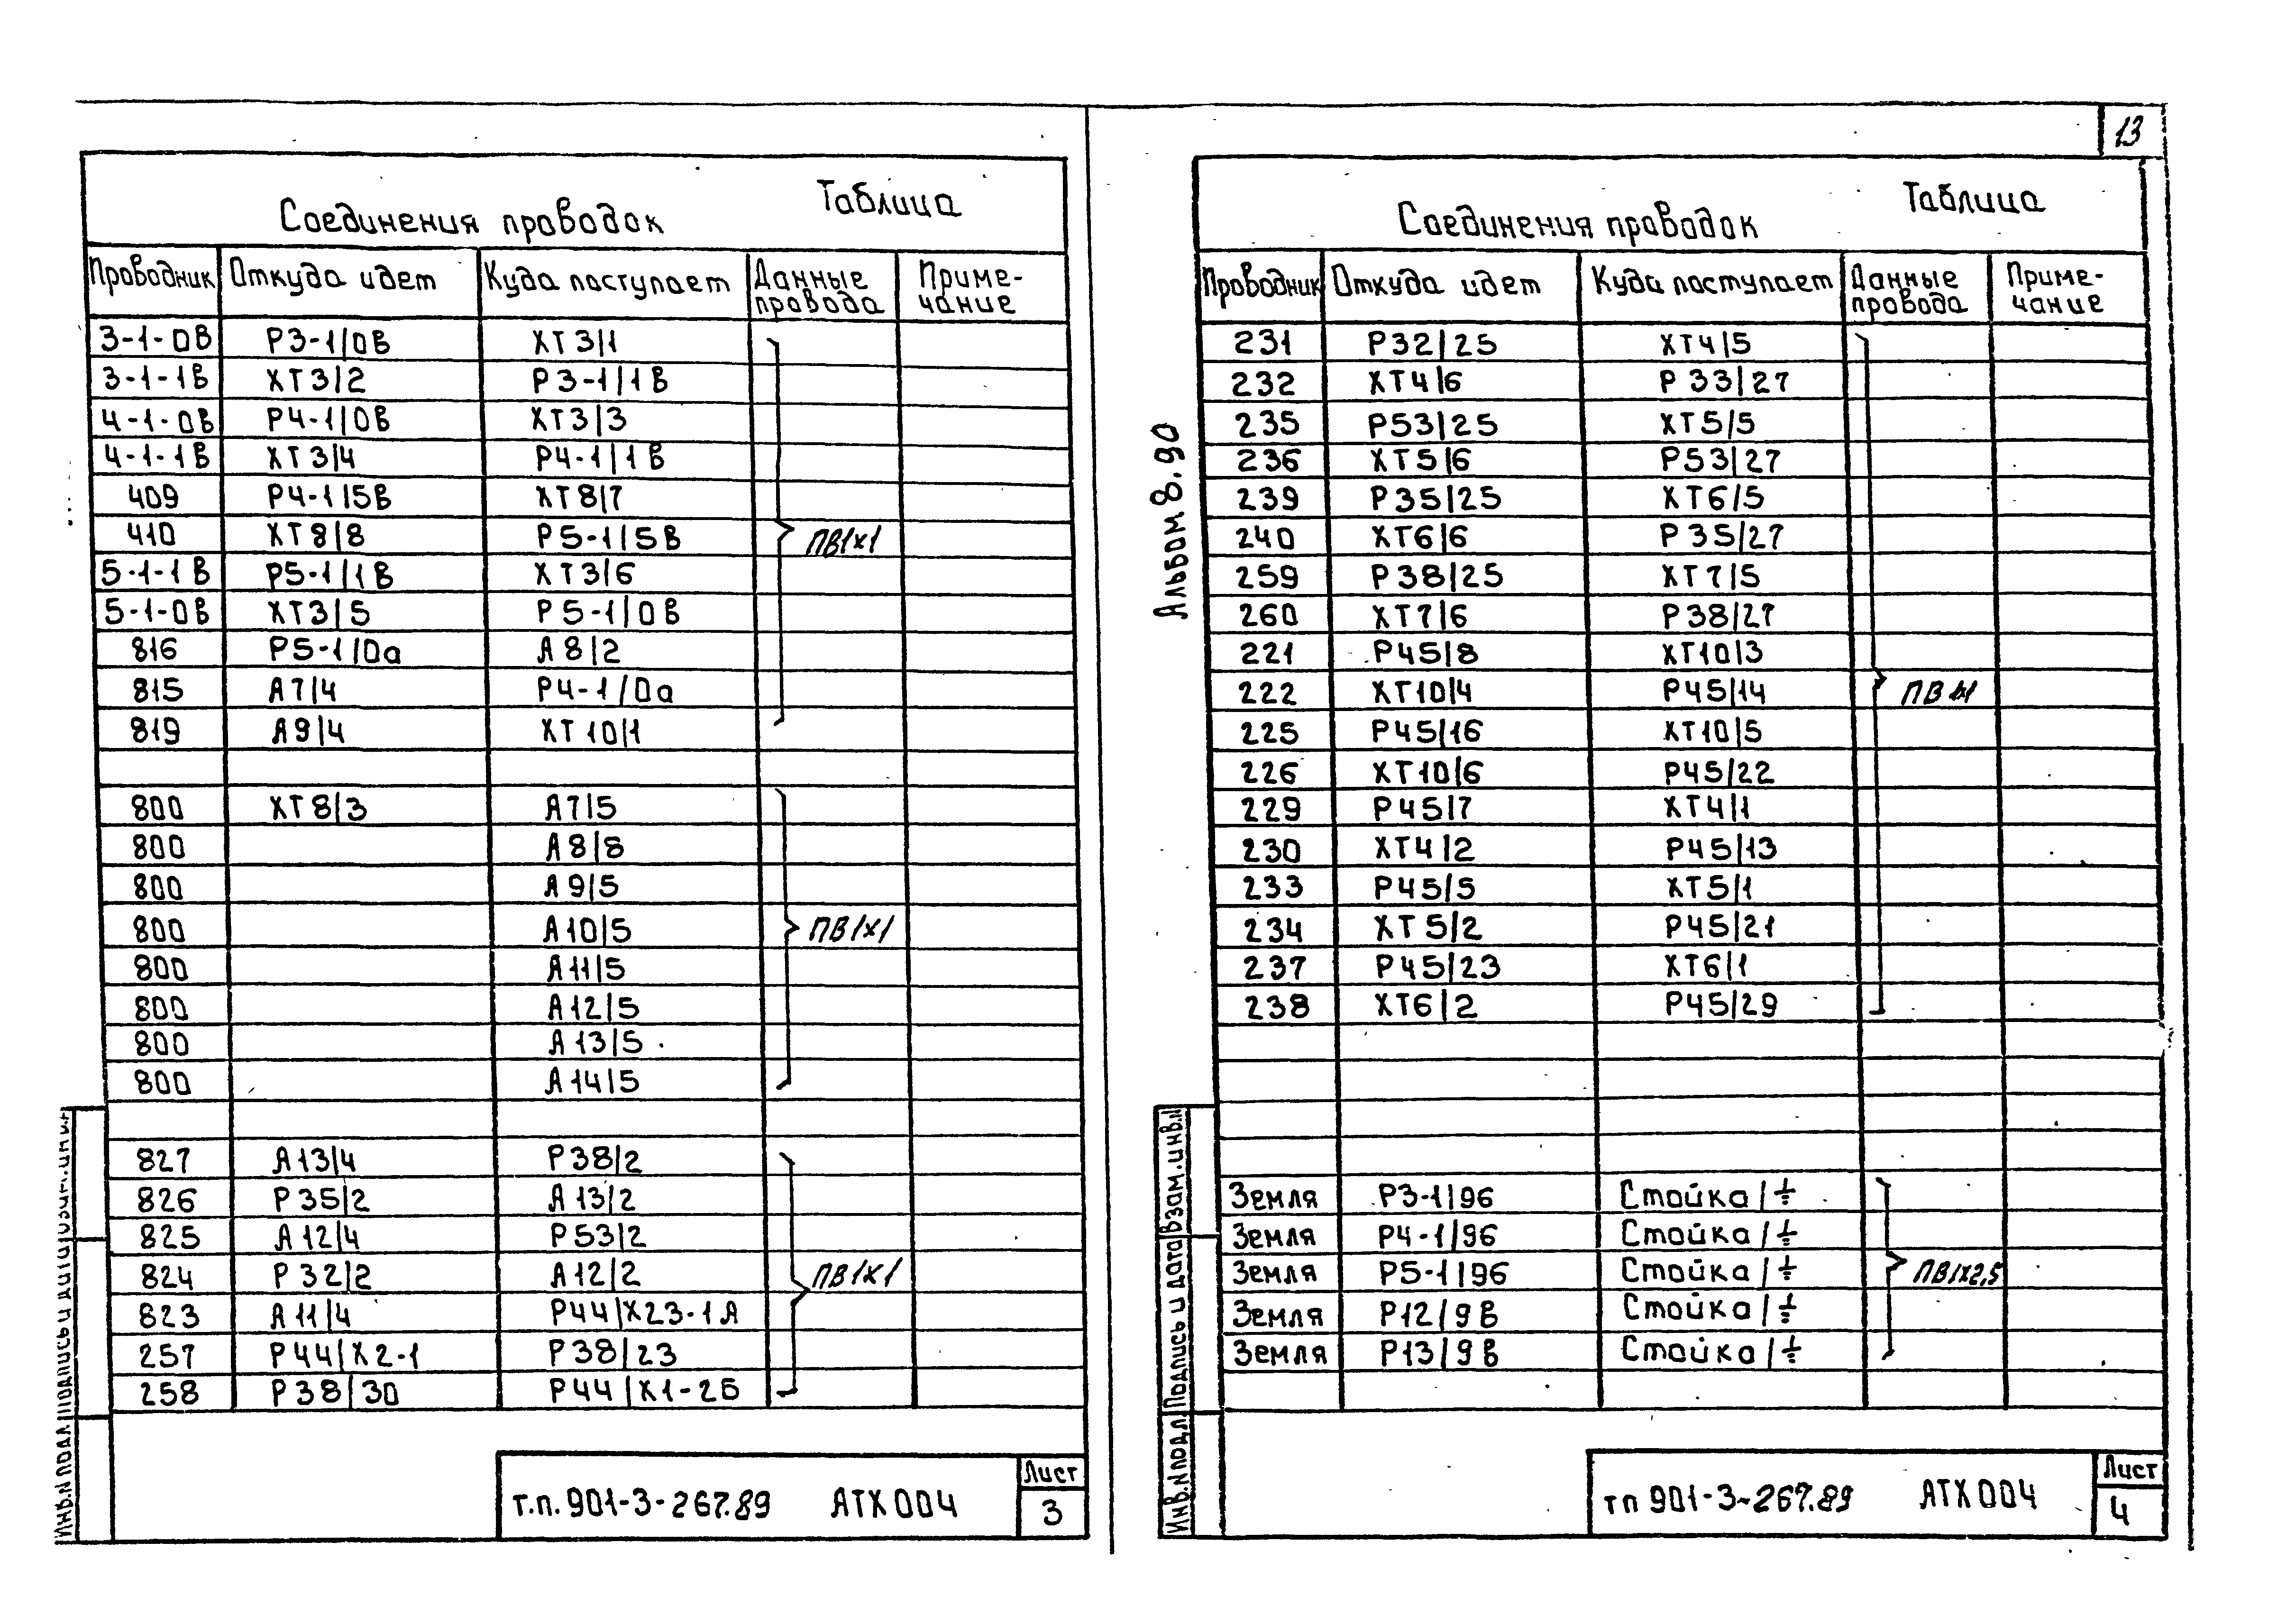 13
Таблица
Соединения проводок
Проводник Откуда идет Куда поступает Данные провода Приме-чание
3-1-0В Р3-1/0В ХТ3/1
3-1-1В ХТ3/2 Р3-1/1В
4-1-0В Р4-1/0В ХТ3/3
4-1-1В ХТ3/4 Р4-1/1В
409 Р4-1/5В ХТ8/7
410 ХТ8/8 Р5-1/5В ПВ1х1
5-1-1В Р5-1/1В ХТ3/6
5-1-0В ХТ3/5 Р5-1/0В
816 Р5-1/0а А8/2
815 А7/4 Р4-1/0а
819 А9/4 ХТ10/1
800 ХТ8/3 А7/5
800 А8/8
800 А9/5
800 А10/5 ПВ1х1
800 А11/5
800 А12/5
800 А13/5
800 А14/5
827 А13/4 Р38/2
826 Р35/2 А13/2
825 А12/4 Р53/2
824 Р32/2 А12/2 ПВ1х1
823 А11/4 Р44/Х23-1А
257 Р44/Х2-1 Р38/23
258 Р38/30 Р44/Х1-2Б
Инв.N подл Подпись и
т.п. 901-3-267.89 АТХ004
Лист
3
Таблица
Соединения проводок
Проводник Откуда идет Куда поступает Данные провода Приме-чание
231 Р32/25 ХТ4/5
232 ХТ4/6 Р33/27
235 Р53/25 ХТ5/5
236 ХТ5/6 Р53/27
239 Р35/25 ХТ6/5
240 ХТ6/6 Р35/27
259 Р38/25 ХТ7/5
260 ХТ7/6 Р38/27
221 Р45/8 ХТ10/3
222 ХТ10/4 Р45/14 ПВ1х1
225 Р45/16 ХТ10/5
226 ХТ10/6 Р45/22
229 Р45/7 ХТ4/1
230 ХТ4/2 Р45/13
233 Р45/5 ХТ5/1
234 ХТ5/2 Р45/21
237 Р45/23 ХТ6/1
238 ХТ6/2 Р45/29
Земля Р3-1/96 Стойка/⏚
Земля Р4-1/96 Стойка/⏚
Земля Р5-1/96 Стойка/⏚ ПВ1х2,5
Земля Р12/9В Стойка/⏚
Земля Р13/9В Стойка/⏚
Альбом 8.90
Инв.N подл Подпись и дата Взам.инв.N
тп 901-3-267.89 АТХ004
Лист
4